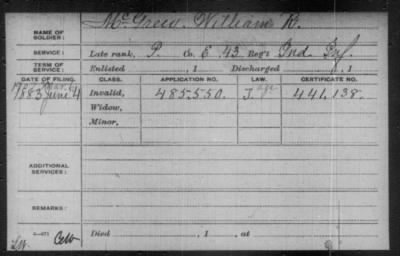 NAME OF SOLDIER: McGrew, William R.
SERVICE: Late rank, P. Co. E. 43 Reg't Ind. Inf.
TERM OF SERVICE: Enlisted , 1 Discharged , 1
DATE OF FILING. CLASS. APPLICATION NO. LAW. CERTIFICATE NO.
1883 June 4 Invalid, 485.550. J. age 441.138.
Widow,
Minor,
ADDITIONAL SERVICES:
REMARKS:
Died , 1 , at